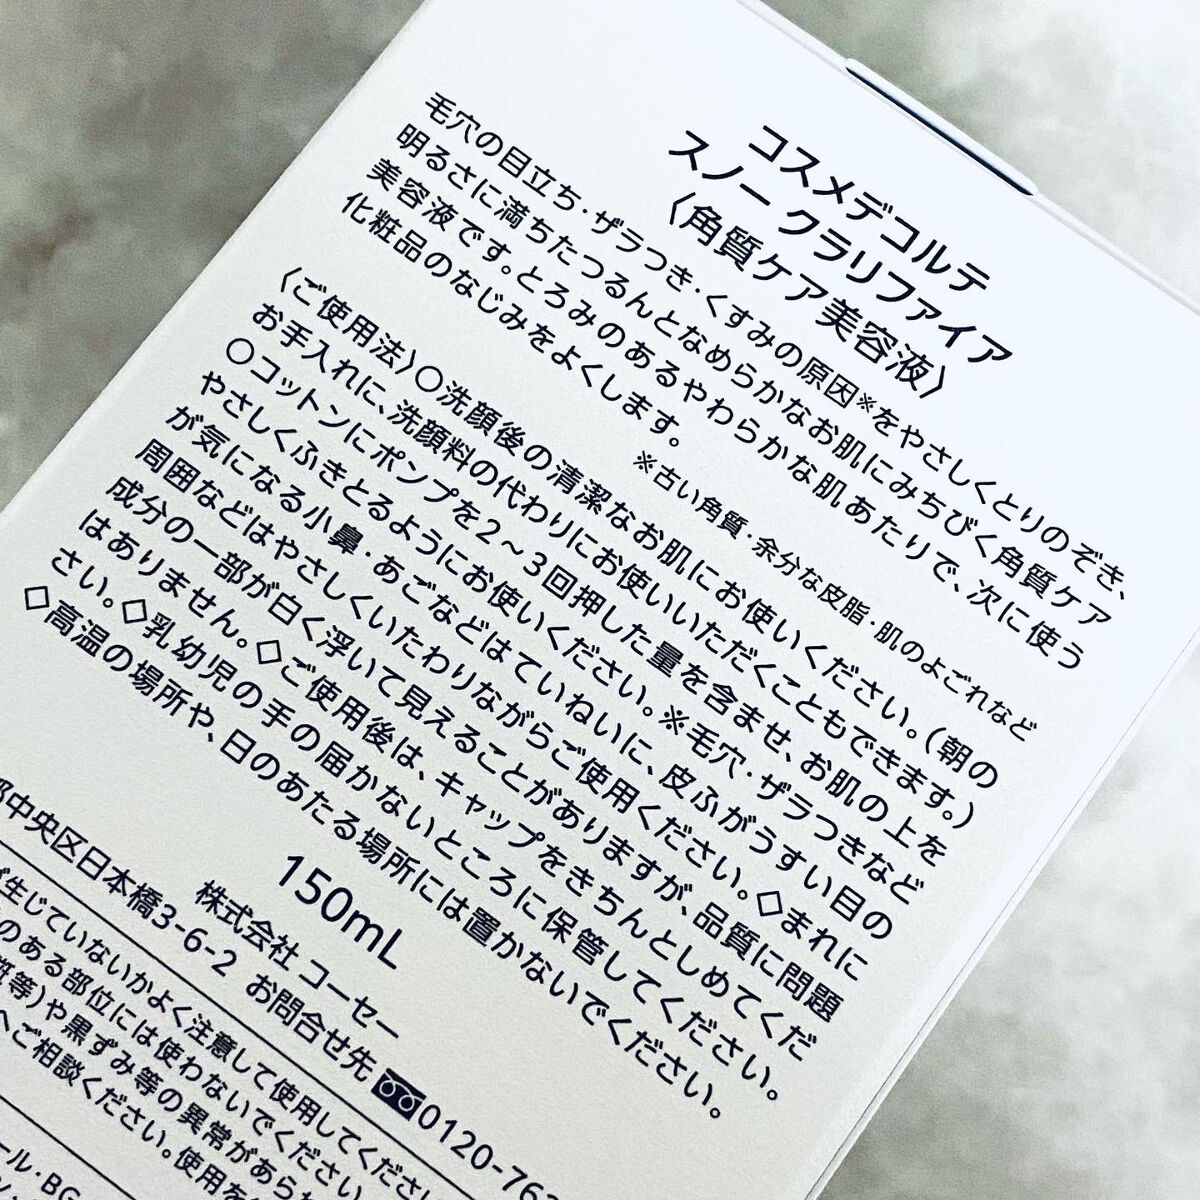 コスメデコルテ
スノー クラリファイア
〈角質ケア美容液〉
毛穴の目立ち・ザラつき・くすみの原因※をやさしくとりのぞき、
明るさに満ちたつるんとなめらかなお肌にみちびく角質ケア
美容液です。とろみのあるやわらかな肌あたりで、次に使う
化粧品のなじみをよくします。
※古い角質・余分な皮脂・肌のよごれなど
〈ご使用法〉○洗顔後の清潔なお肌にお使いください。(朝の
お手入れに、洗顔料の代わりにお使いいただくこともできます。)
○コットンにポンプを2～3回押した量を含ませ、お肌の上を
やさしくふきとるようにお使いください。※毛穴・ザラつきなど
が気になる小鼻・あごなどはていねいに、皮ふがうすい目の
周囲などはやさしくいたわりながらご使用ください。◇まれに
成分の一部が白く浮いて見えることがありますが、品質に問題
はありません。◇ご使用後は、キャップをきちんとしめてくだ
さい。◇乳幼児の手の届かないところに保管してください。
◇高温の場所や、日のあたる場所には置かないでください。
150mL
株式会社 コーセー
中央区日本橋3-6-2 お問合せ先 0120-76
生じていないかよく注意して使用してくださ
のある部位には使わないでください
等)や黒ずみ等の異常があら
へご相談ください。使用を
ール・BG